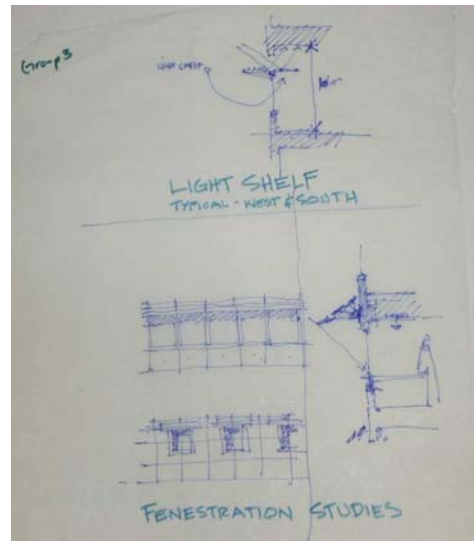 Group 3
LIGHT SHELF
LIGHT SHELF
TYPICAL - WEST & SOUTH
FENESTRATION STUDIES